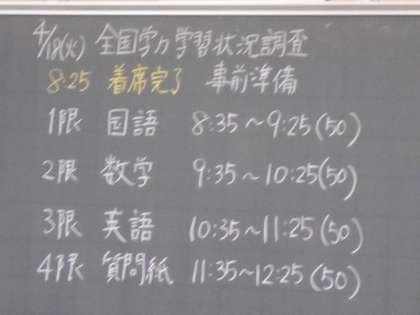 4/18(火) 全国学力学習状況調査
8:25 着席完了 事前準備
1限 国語 8:35〜9:25(50)
2限 数学 9:35〜10:25(50)
3限 英語 10:35〜11:25(50)
4限 質問紙 11:35〜12:25(50)